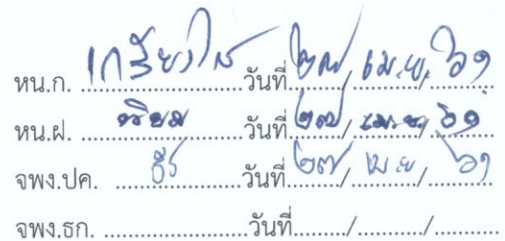 หน.ก. เกรียงไกร วันที่ ๒๗ / เม.ย. / ๖๑
หน.ฝ. ........................ วันที่ ๒๗ / เม.ย. / ๖๑
จพง.ปค. ........................ วันที่ ๒๗ / เม.ย / ๖๑
จพง.ธก. ........................ วันที่ ......... / ........... / ...........